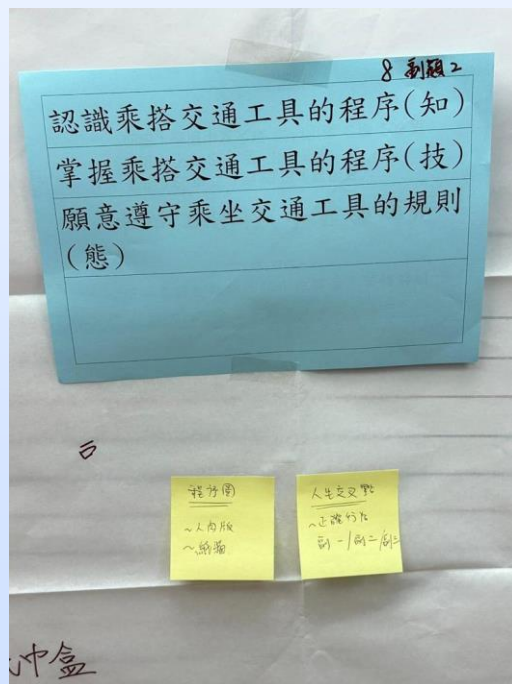 8 副題2
認識乘搭交通工具的程序(知)
掌握乘搭交通工具的程序(技)
願意遵守乘坐交通工具的規則
(態)
程序圖
~人肉版
人生交叉點
~正確行為
副一/副二/副三